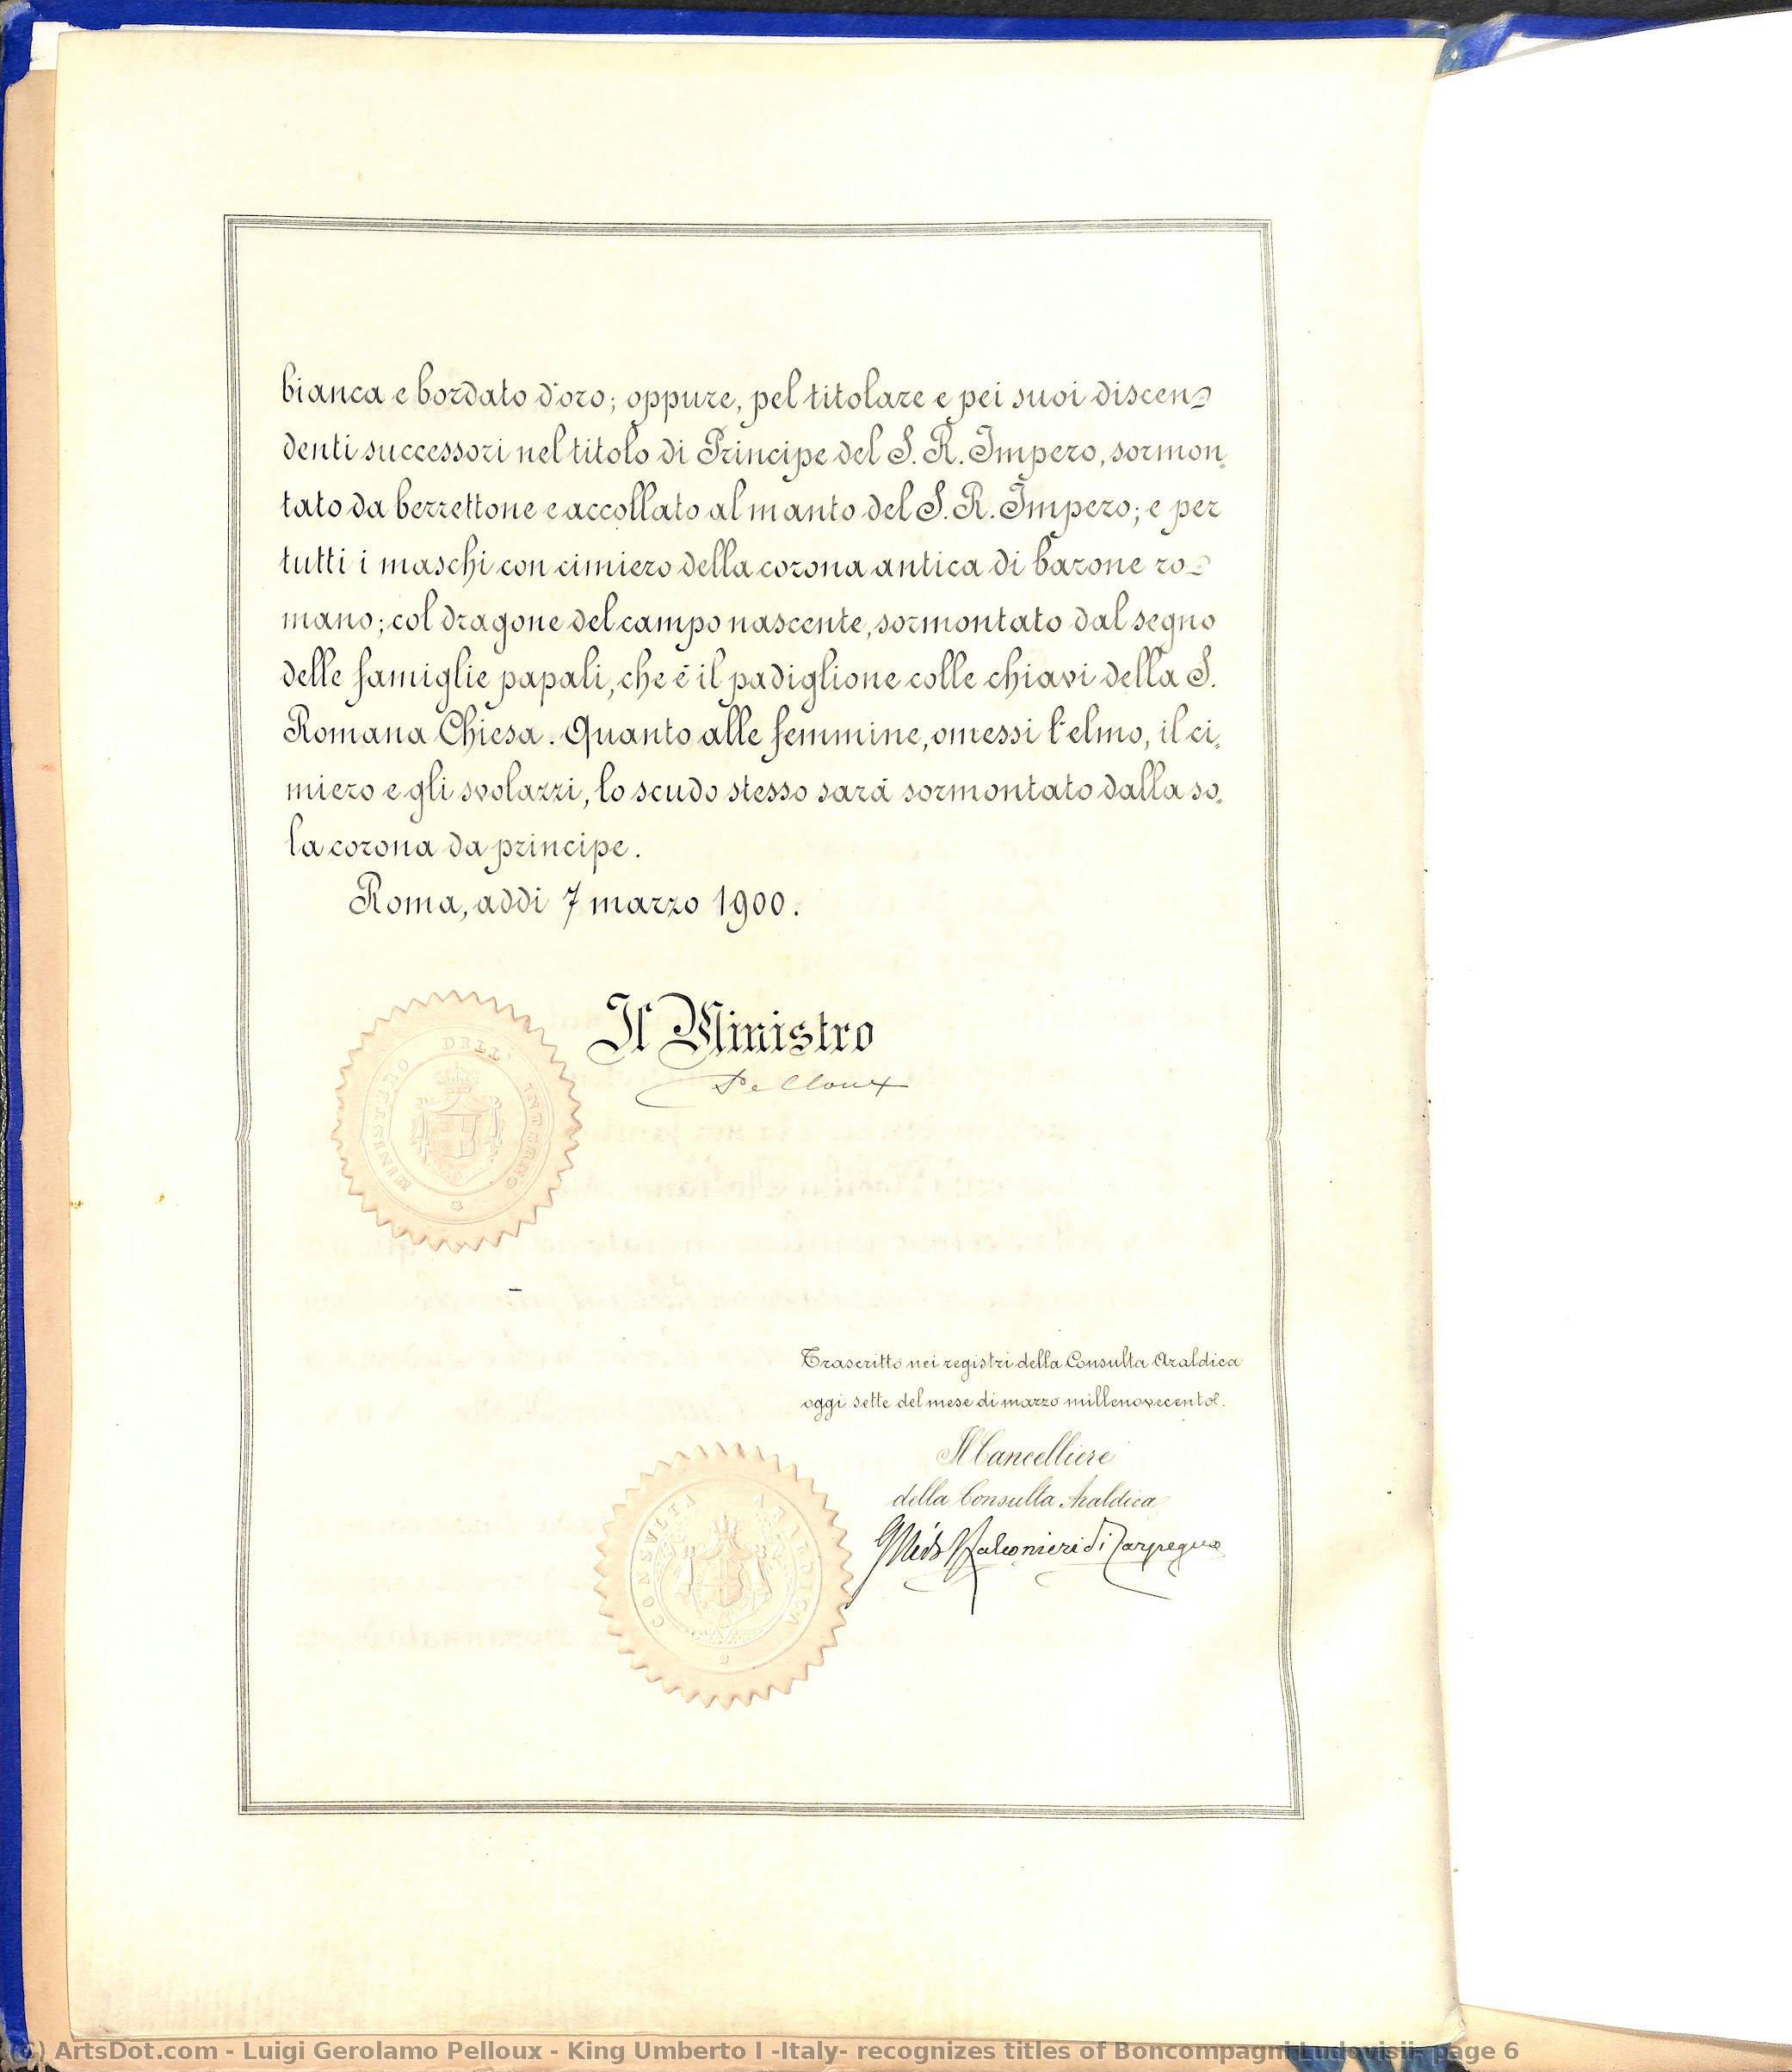 bianca e bordato d'oro; oppure, pel titolare e pei suoi discen-
denti successori nel titolo di Principe del S. R. Impero, sormon-
tato da berrettone e accollato al manto del S. R. Impero; e per
tutti i maschi con cimiero della corona antica di barone ro-
mano; col dragone del campo nascente, sormontato dal segno
delle famiglie papali, che è il padiglione colle chiavi della S.
Romana Chiesa. Quanto alle femmine, omessi l'elmo, il ci-
miero e gli svolazzi, lo scudo stesso sarà sormontato dalla so-
la corona da principe.
Roma, addi 7 marzo 1900.
Il Ministro
Pelloux
MINISTERO DELL' INTERNO
Trascritto nei registri della Consulta Araldica
oggi sette del mese di marzo millenovecento.
Il Cancelliere
della Consulta Araldica
Falconieri di Carpegna
CONSULTA ARALDICA
(C) ArtsDot.com - Luigi Gerolamo Pelloux - King Umberto I -Italy- recognizes titles of Boncompagni Ludovisii- page 6